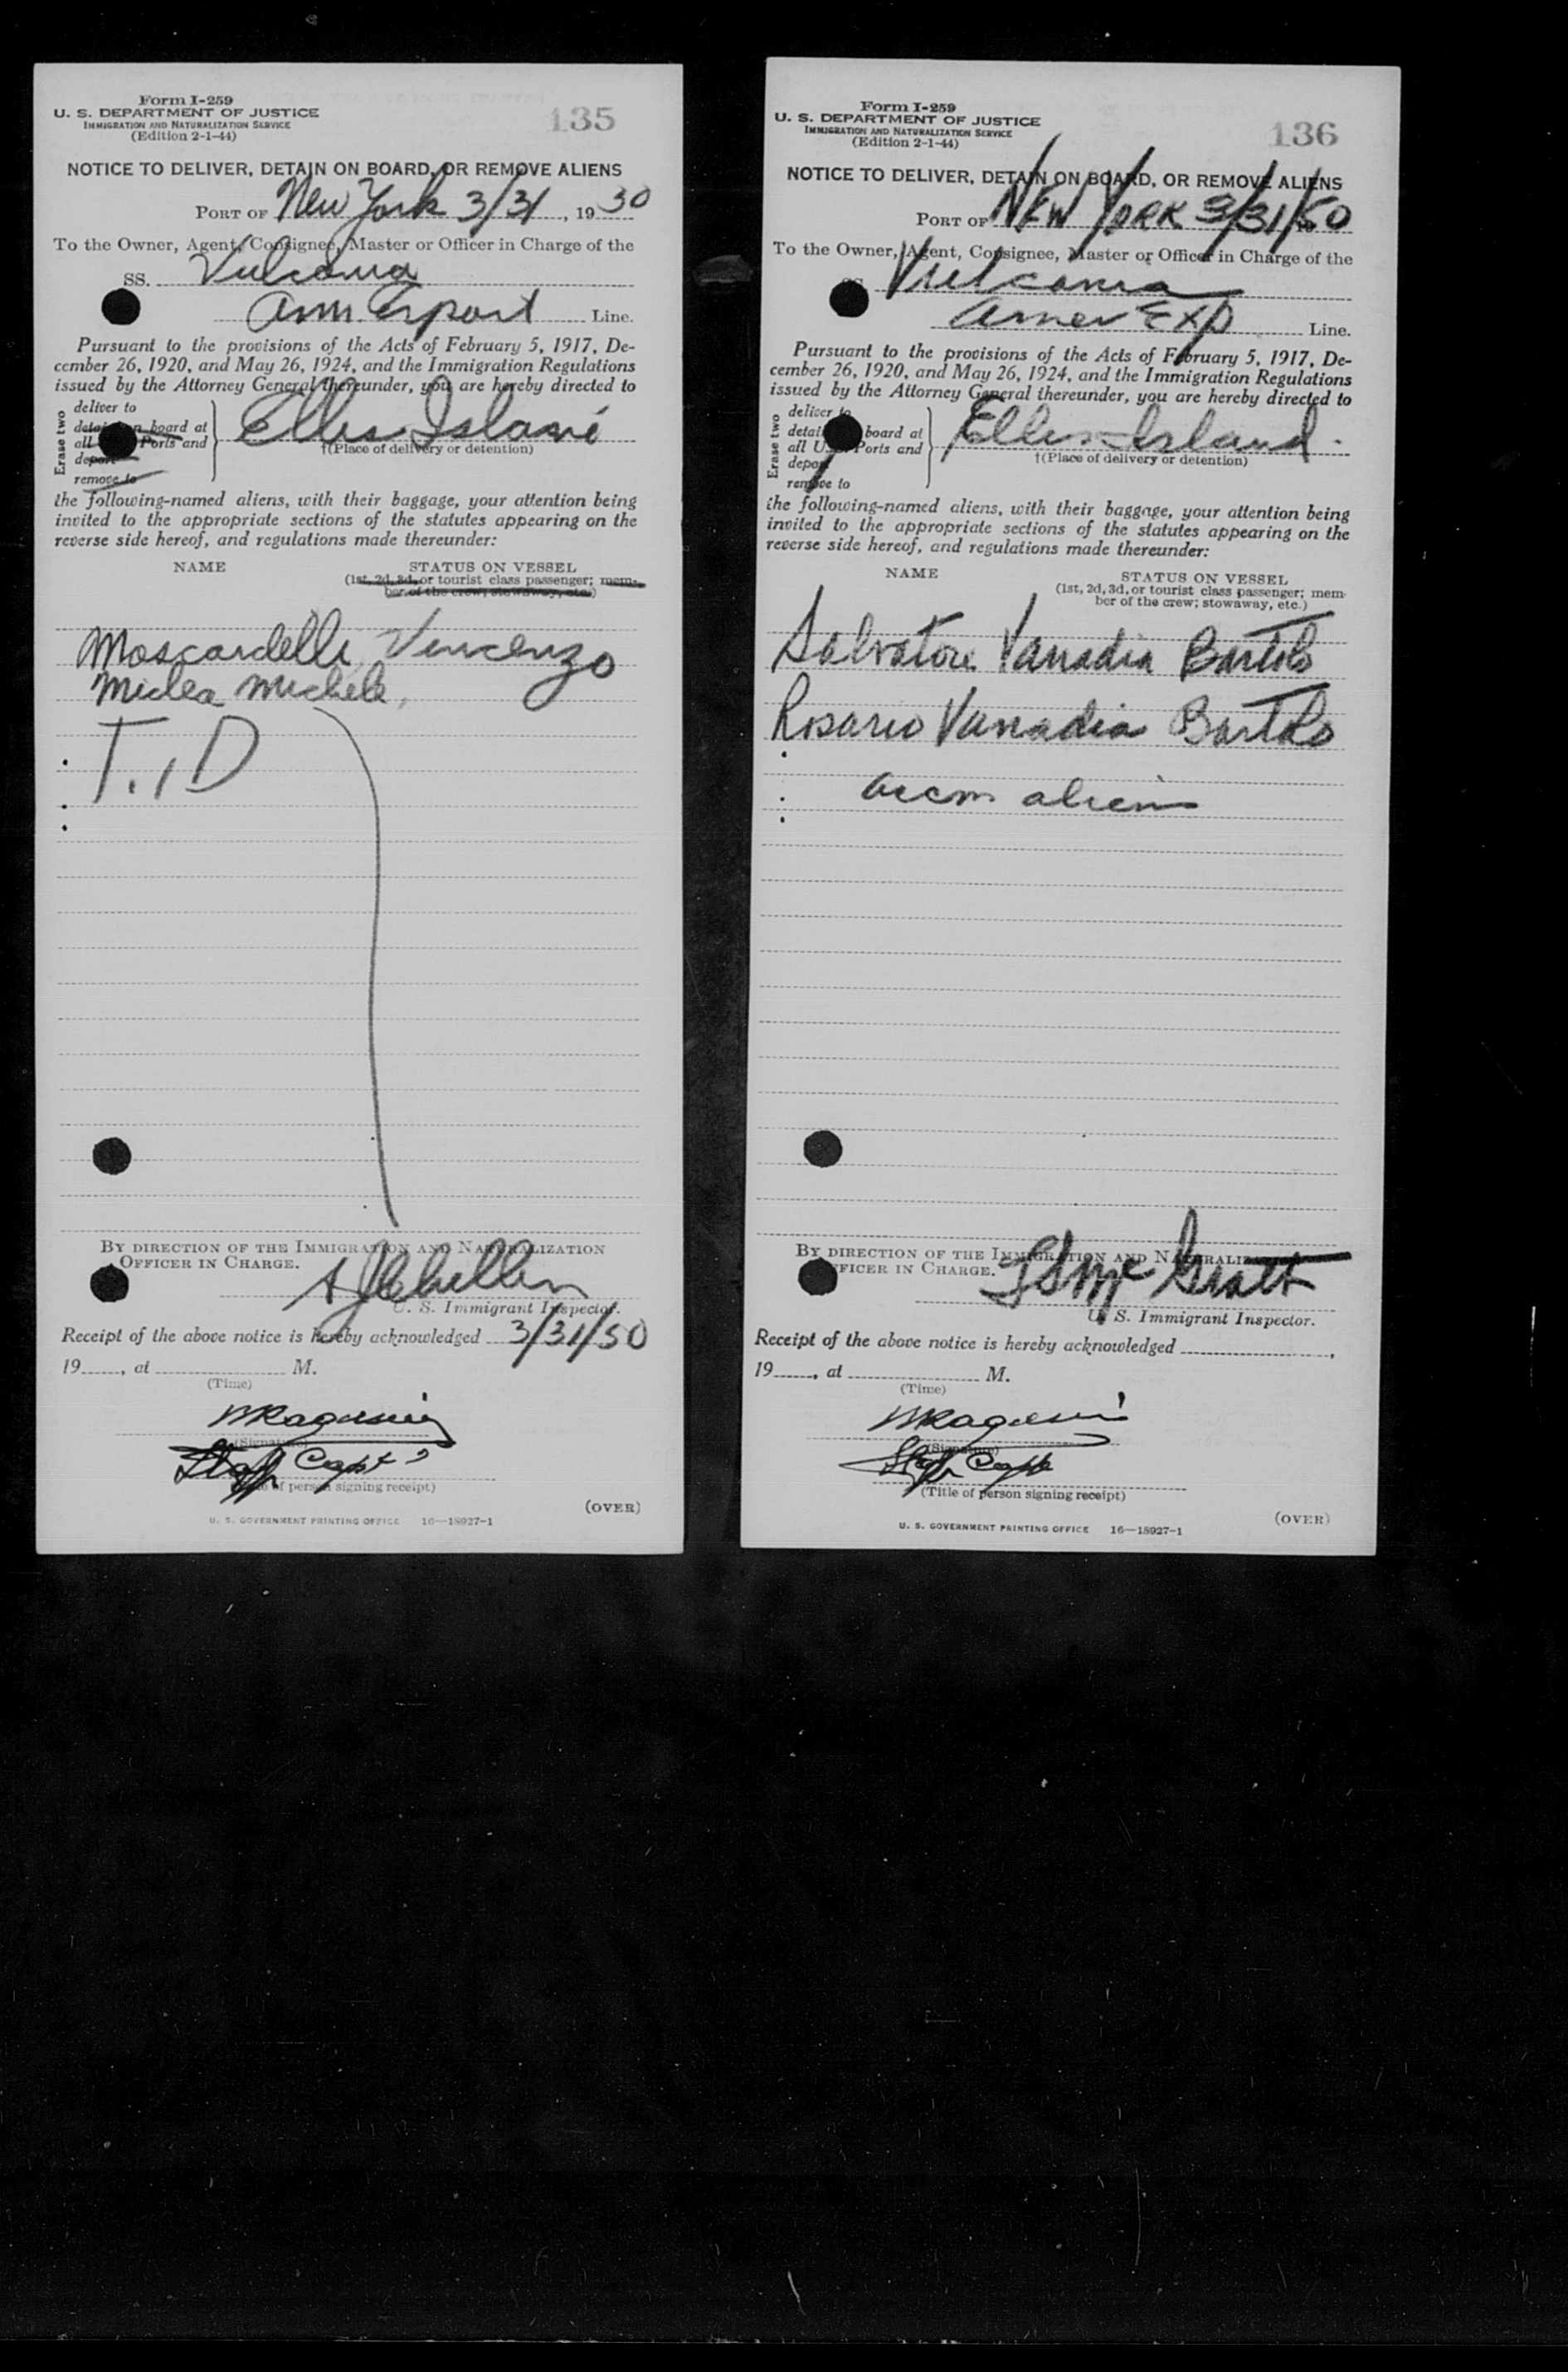 Form I-259
U. S. DEPARTMENT OF JUSTICE
IMMIGRATION AND NATURALIZATION SERVICE
(Edition 2-1-44)
135
NOTICE TO DELIVER, DETAIN ON BOARD, OR REMOVE ALIENS
PORT OF New York 3/31, 1930
To the Owner, Agent, Consignee, Master or Officer in Charge of the
SS. Vulcania
Am. Export Line.
Pursuant to the provisions of the Acts of February 5, 1917, De-
cember 26, 1920, and May 26, 1924, and the Immigration Regulations
issued by the Attorney General thereunder, you are hereby directed to
Erase two
deliver to
detain on board at
all Ports and
deport
remove to
Ellis Island
†(Place of delivery or detention)
the following-named aliens, with their baggage, your attention being
invited to the appropriate sections of the statutes appearing on the
reverse side hereof, and regulations made thereunder:
NAME STATUS ON VESSEL
(1st, 2d, 3d, or tourist class passenger; mem-
ber of the crew; stowaway, etc.)
Moscardelli, Vincenzo
Michele,
T.,D
BY DIRECTION OF THE IMMIGRATION AND NATURALIZATION
OFFICER IN CHARGE.
U. S. Immigrant Inspector.
Receipt of the above notice is hereby acknowledged 3/31/50
19____, at ____ M.
(Time)
(Signature)
Staff Capt
of person signing receipt)
(OVER)
U. S. GOVERNMENT PRINTING OFFICE 16—18927-1
Form I-259
U. S. DEPARTMENT OF JUSTICE
IMMIGRATION AND NATURALIZATION SERVICE
(Edition 2-1-44)
136
NOTICE TO DELIVER, DETAIN ON BOARD, OR REMOVE ALIENS
PORT OF NEW YORK 3/31/50
To the Owner, Agent, Consignee, Master or Officer in Charge of the
Vulcania
Amer Exp Line.
Pursuant to the provisions of the Acts of February 5, 1917, De-
cember 26, 1920, and May 26, 1924, and the Immigration Regulations
issued by the Attorney General thereunder, you are hereby directed to
Erase two
deliver to
detain board at
all U. Ports and
deport
remove to
Ellis Island.
†(Place of delivery or detention)
the following-named aliens, with their baggage, your attention being
invited to the appropriate sections of the statutes appearing on the
reverse side hereof, and regulations made thereunder:
NAME STATUS ON VESSEL
(1st, 2d, 3d, or tourist class passenger; mem-
ber of the crew; stowaway, etc.)
Salvatore Vanadia Bartolo
Rosario Vanadia Bartolo
accm aliens
BY DIRECTION OF THE IMMIGRATION AND NATURALIZATION
OFFICER IN CHARGE.
U. S. Immigrant Inspector.
Receipt of the above notice is hereby acknowledged ____,
19____, at ____ M.
(Time)
(Signature)
Staff Capt
(Title of person signing receipt)
(OVER)
U. S. GOVERNMENT PRINTING OFFICE 16—18927-1